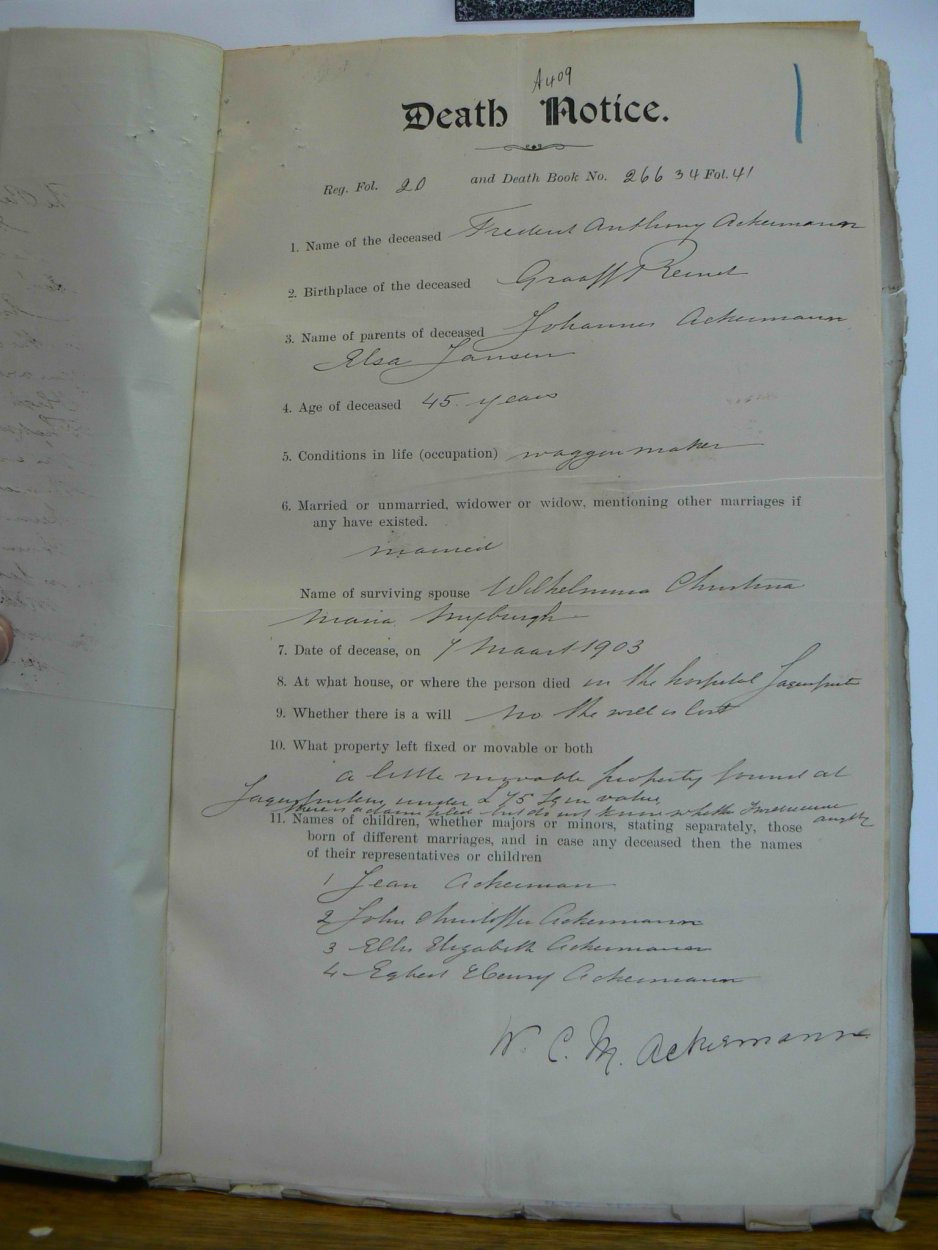 A409
Death Notice.
Reg. Fol. 20 and Death Book No. 26634 Fol. 41
1. Name of the deceased Anthony Ackermann
2. Birthplace of the deceased Graaff Reinet
3. Name of parents of deceased Johannes Ackermann
Elsa Jansen
4. Age of deceased 45 years
5. Conditions in life (occupation) waggon maker
6. Married or unmarried, widower or widow, mentioning other marriages if
any have existed.
married
Name of surviving spouse Wilhelmina Christina
Maria Myburgh
7. Date of decease, on 7 Maart 1903
8. At what house, or where the person died in the hospital
9. Whether there is a will No the will is lost
10. What property left fixed or movable or both
a little movable property found at
under £ 75 in value
there is a claim filed but do not know whether anything
11. Names of children, whether majors or minors, stating separately, those
born of different marriages, and in case any deceased then the names
of their representatives or children
1 Jean Ackerman
2 John Christoffer Ackermann
3 Ellis Elizabeth Ackermann
4 Egbert Henry Ackermann
W. C. M. Ackermann